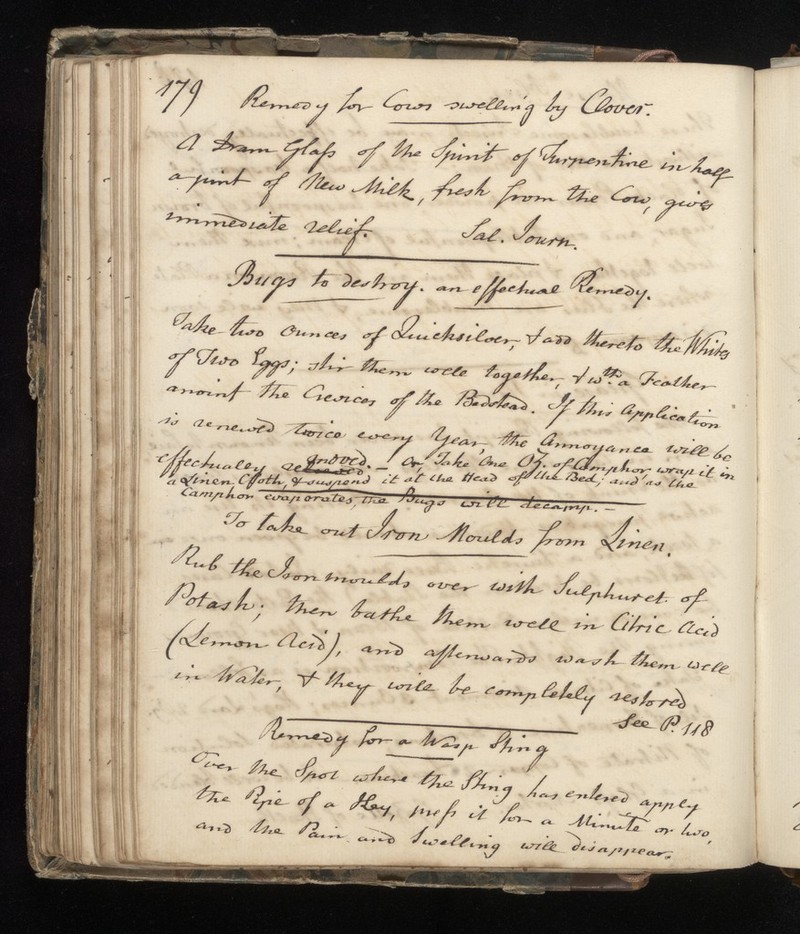 179 Remedy for Cows swelling by Clover.
A Dram Glass of the Spirit of Turpentine in half
a pint of New Milk, fresh from the Cow, gives
immediate relief. Sal. Journ.
Bugs to destroy. an effectual Remedy.
Take two Ounces of Quicksilver, & add thereto the Whites
of Two Eggs; stir them well together, & wth. a Feather
anoint the Crevices of the Bedstead. If this Application
is renewed twice every Year, the Annoyance will be
effectually removed. – Or, Take One Oz. of Camphor wrap it in
a Linen Cloth, & suspend it at the Head of the Bed; and as the
Camphor evaporates, the Bugs will decamp. –
To take out Iron Moulds from Linen.
Rub the Iron moulds over with Sulphuret of
Potash; then bathe them well in Citric Acid
(Lemon Acid), and afterwards wash them well
in Water, & they will be completely restored
See P. 118
Remedy for a Wasp Sting
Over the Spot where the Sting has entered apply
the Pipe of a Key, press it for a Minute or two,
and the Pain and Swelling will disappear.